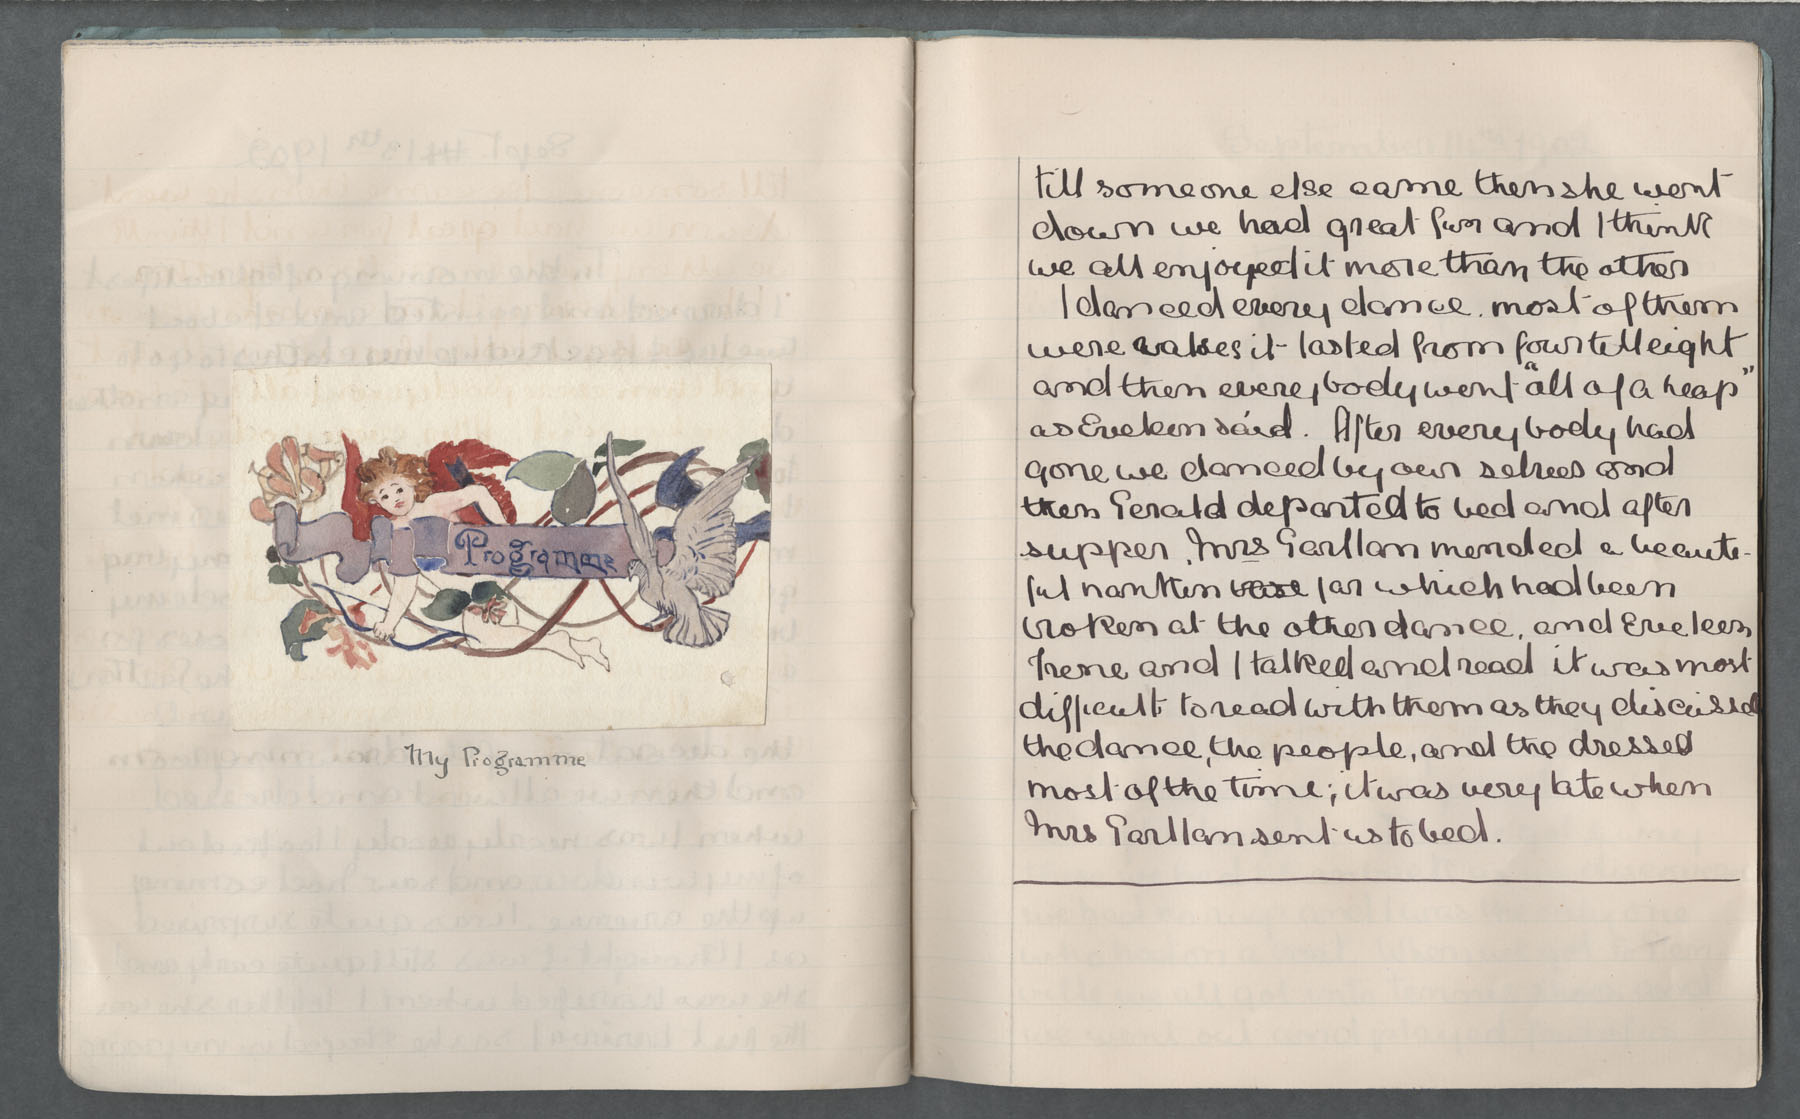 Programme
My Programme
till someone else came then she went
down we had great fun and I think
we all enjoyed it more than the other
I danced every dance. most of them
were valses it lasted from four till eight
and then everybody went "all of a heap"
as Eveleen said. After everybody had
gone we danced by our selves and
then Gerald departed to bed and after
supper, Mrs Garllan mended a beaute-
ful nanken vase jar which had been
broken at the other dance, and Eveleen
Irene and I talked and read it was most
difficult to read with them as they discussed
the dance, the people, and the dresses
most of the time; it was very late when
Mrs Garllan sent us to bed.